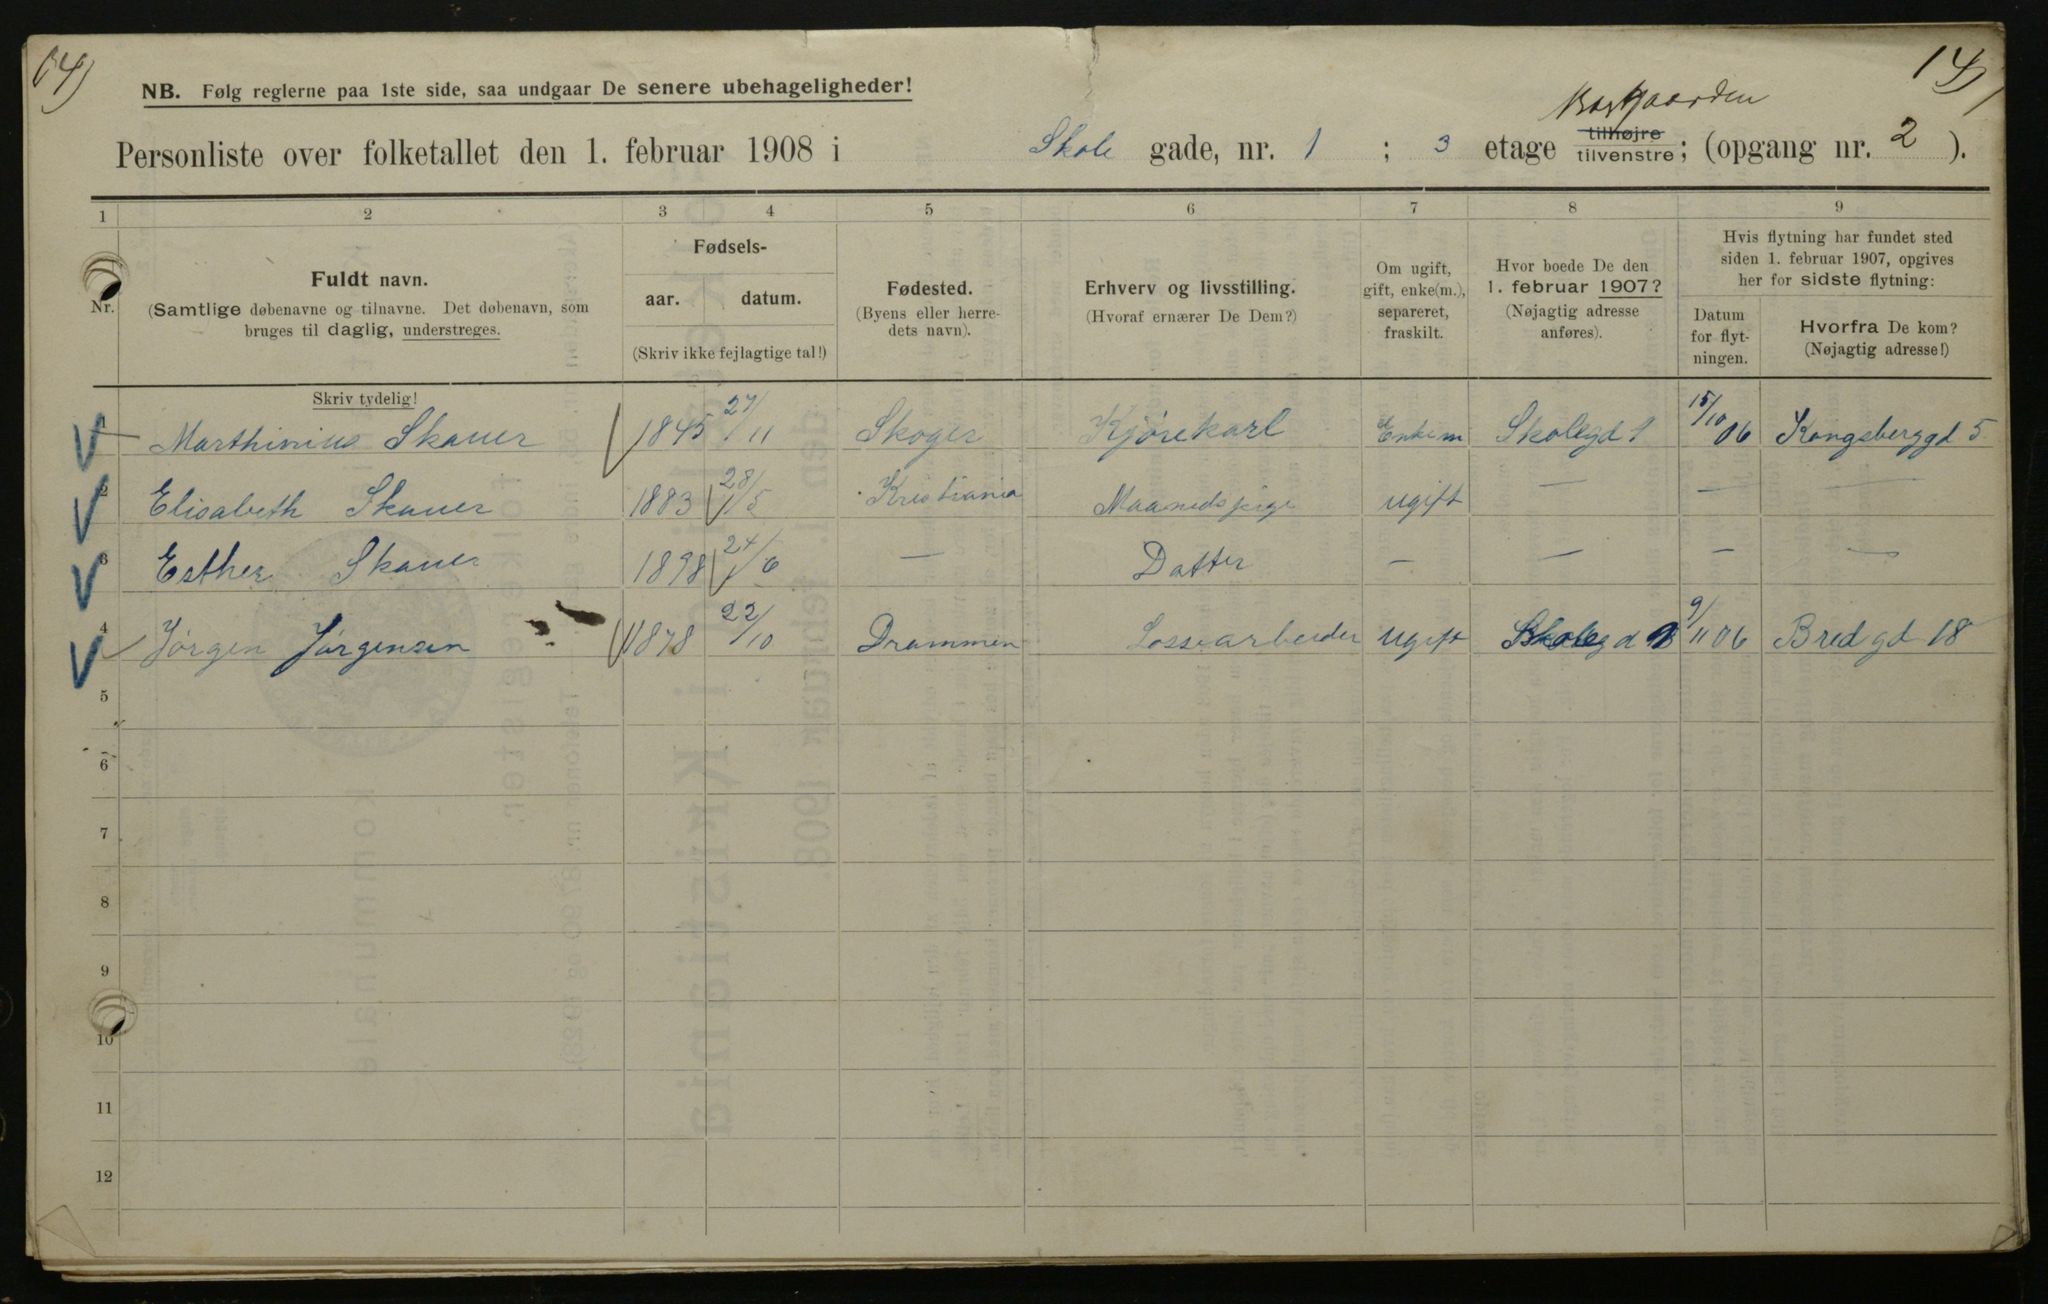 64)
141
NB. Følg reglerne paa 1ste side, saa undgaar De senere ubehageligheder!
Bakgaarden
Personliste over folketallet den 1. februar 1908 i Skole gade, nr. 1 ; 3 etage tilhøjre tilvenstre; (opgang nr. 2 ).
1 2 3 4 5 6 7 8 9
Nr.
Fuldt navn.
(Samtlige døbenavne og tilnavne. Det døbenavn, som
bruges til daglig, understreges.
Skriv tydelig!
Fødsels-
aar. datum.
(Skriv ikke fejlagtige tal!)
Fødested.
(Byens eller herre-
dets navn).
Erhverv og livsstilling.
(Hvoraf ernærer De Dem?)
Om ugift,
gift, enke(m.),
separeret,
fraskilt.
Hvor boede De den
1. februar 1907?
(Nøjagtig adresse
anføres).
Hvis flytning har fundet sted
siden 1. februar 1907, opgives
her for sidste flytning:
Datum
for flyt-
ningen.
Hvorfra De kom?
(Nøjagtig adresse!)
1 Marthinius Skauer 1845 27/11 Skoger Kjørekarl Enkem Skolegd 1 15/10 06 Kongsberggd 5
2 Elisabeth Skauer 1883 28/5 Kristiania Maanedspige ugift — — —
3 Esther Skauer 1898 24/6 — Datter — — — —
4 Jørgen Jørgensen 1878 22/10 Drammen Lossearbeider ugift Skolegd 9/11 06 Bredgd 18
5
6
7
8
9
10
11
12